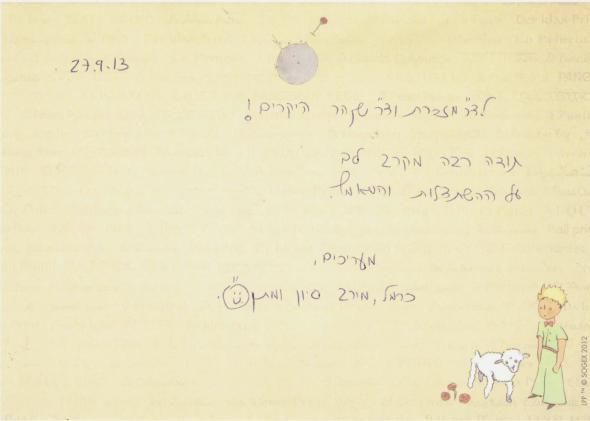 27.9.13
לד"ר מזכרת וד"ר שקהר היקרים!
תודה רבה מקרב לב
על ההשתדלות והמאמץ.
מעריכים,
כרמל, מירב סיון ומתן
LPP ™ © SOGEX 2012